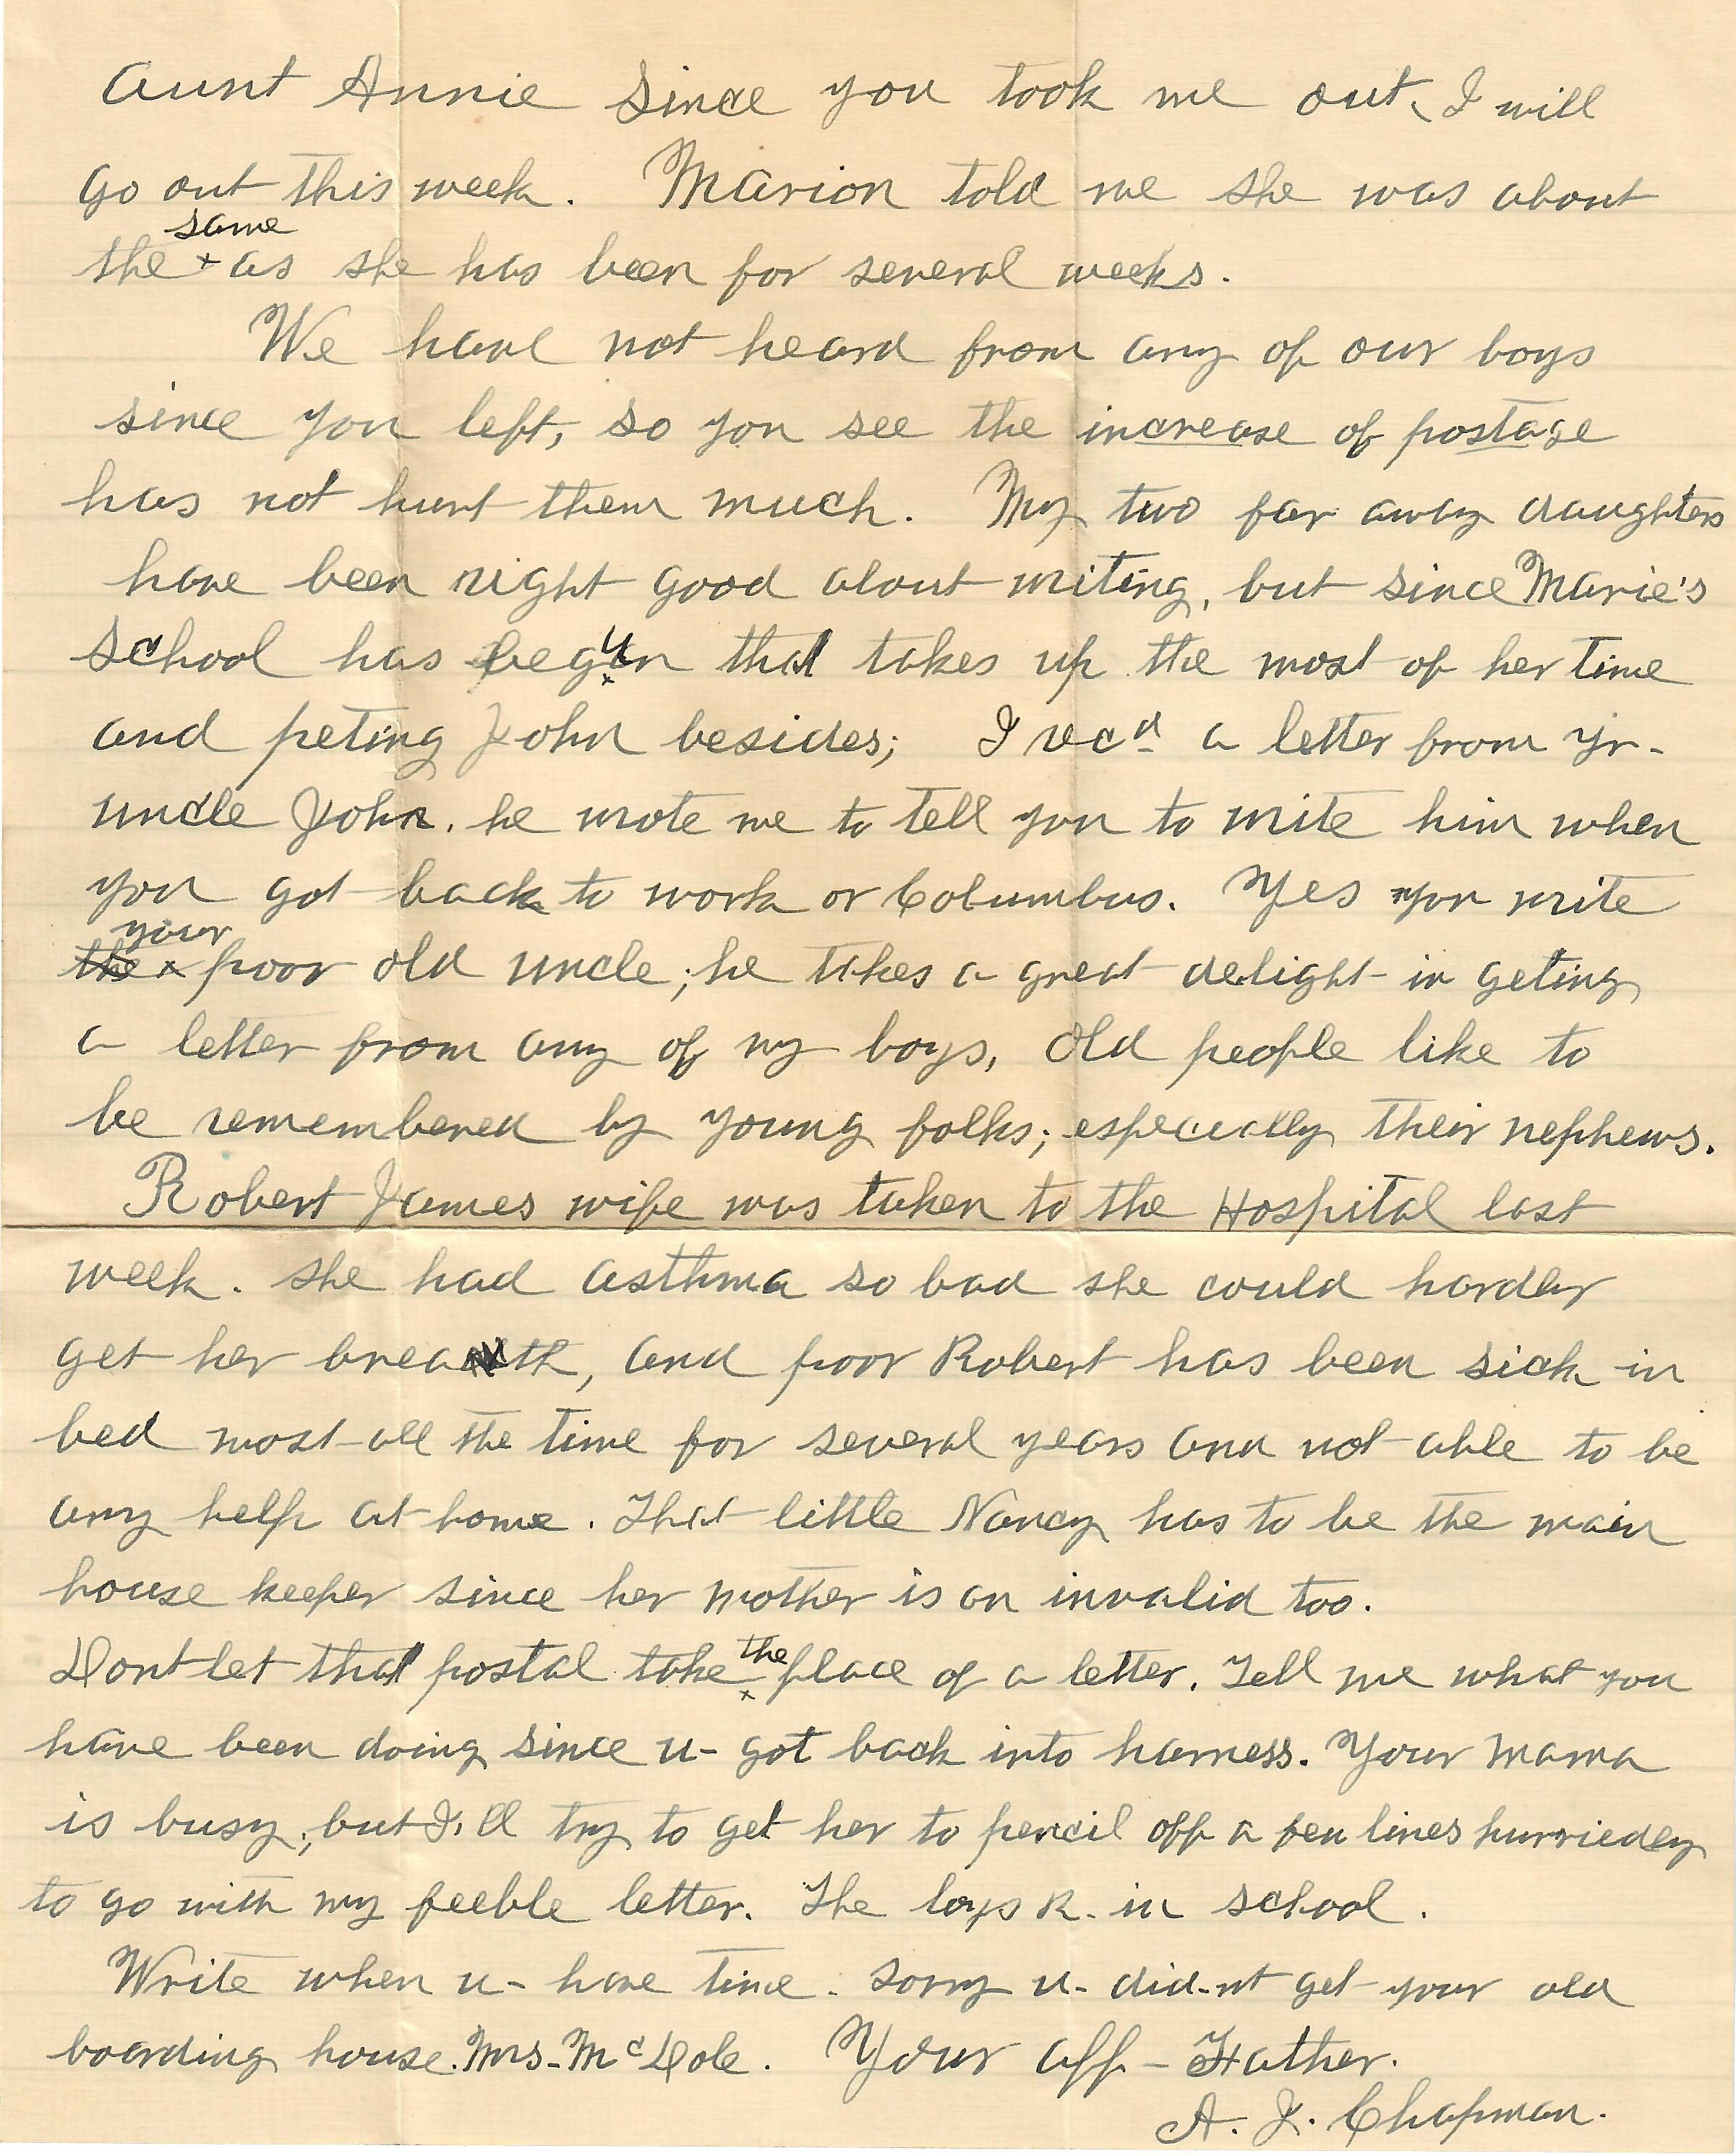 Aunt Annie since you took me out, I will
go out this week. Marion told me she was about
the same as she has been for several weeks.
We have not heard from any of our boys
since you left, so you see the increase of postage
has not hurt them much. My two far away daughters
have been right good about writing, but since Marie's
school has begun that takes up the most of her time
and peting John besides; I recd a letter from yr-
uncle John. he wrote me to tell you to write him when
you got back to work or Columbus. Yes you write
the your poor old uncle; he takes a great delight in geting
a letter from any of my boys, old people like to
be remembered by young folks; especially their nephews.
Robert James wife was taken to the Hospital last
week. she had asthma so bad she could hardly
get her breath, and poor Robert has been sick in
bed most all the time for several years and not able to be
any help at home. That little Nancy has to be the main
house keeper since her mother is an invalid too.
Dont let that postal take the place of a letter. Tell me what you
have been doing since u- got back into harness. Your mama
is busy, but I'll try to get her to pencil off a few lines hurriedly
to go with my feeble letter. The boys R. in school.
Write when u- have time. Sorry u- did-nt get your old
boarding house. Mrs- McDole. Your aff- Father.
A. J. Chapman.